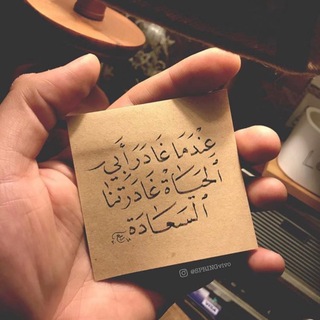 عِنْدَمَا غَادَرَ أَبِي
الحَيَاةْ غَادَرَتنَا
السَعَادَة